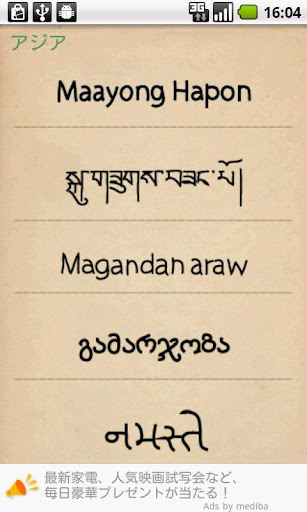 3G 16:04
アジア
Maayong Hapon
སྐུ་གཟུགས་བཟང་པོ།
Magandan araw
გამარჯობა
નમસ્તે
最新家電、人気映画試写会など、
毎日豪華プレゼントが当たる！
Ads by mediba